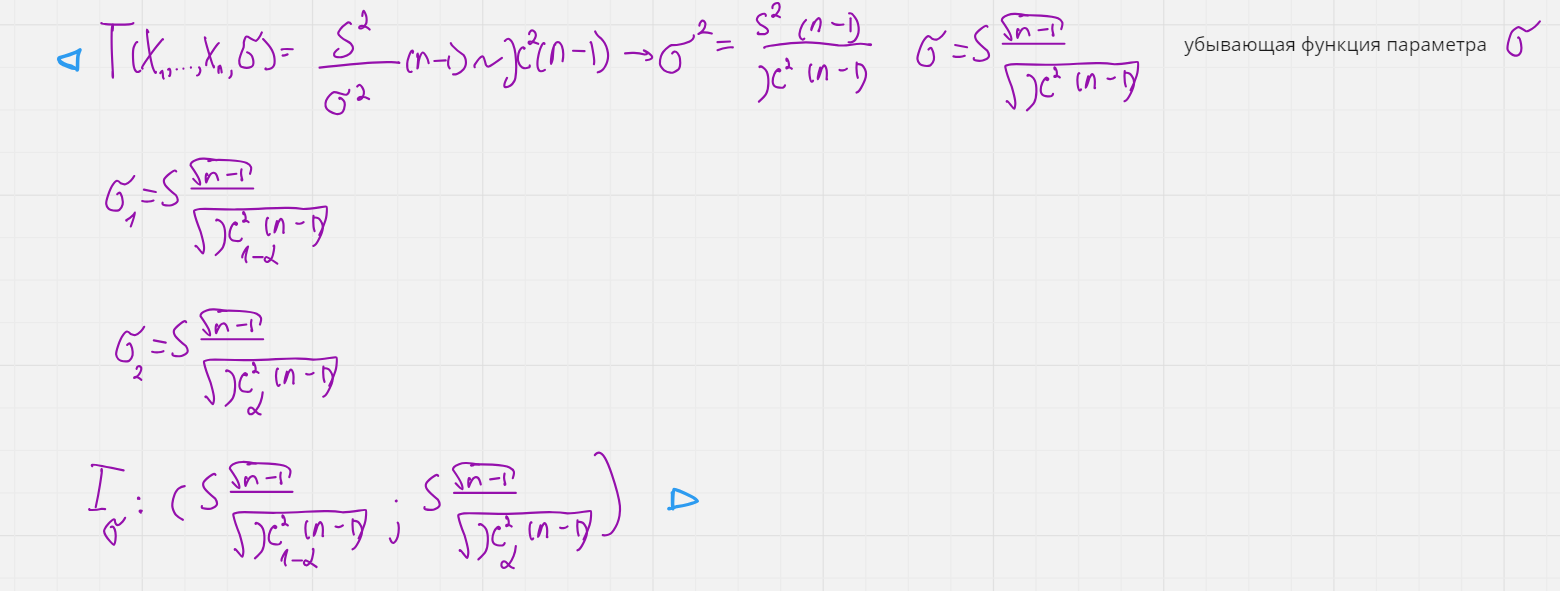 T(X₁,...,Xₙ,σ)= S²/σ² (n-1) ~ χ²(n-1) → σ² = S²(n-1)/χ²(n-1) σ = S √(n-1)/√(χ²(n-1)) убывающая функция параметра σ
σ₁ = S √(n-1)/√(χ²_{1-α}(n-1))
σ₂ = S √(n-1)/√(χ²_α(n-1))
I_σ : (S √(n-1)/√(χ²_{1-α}(n-1)) ; S √(n-1)/√(χ²_α(n-1)))